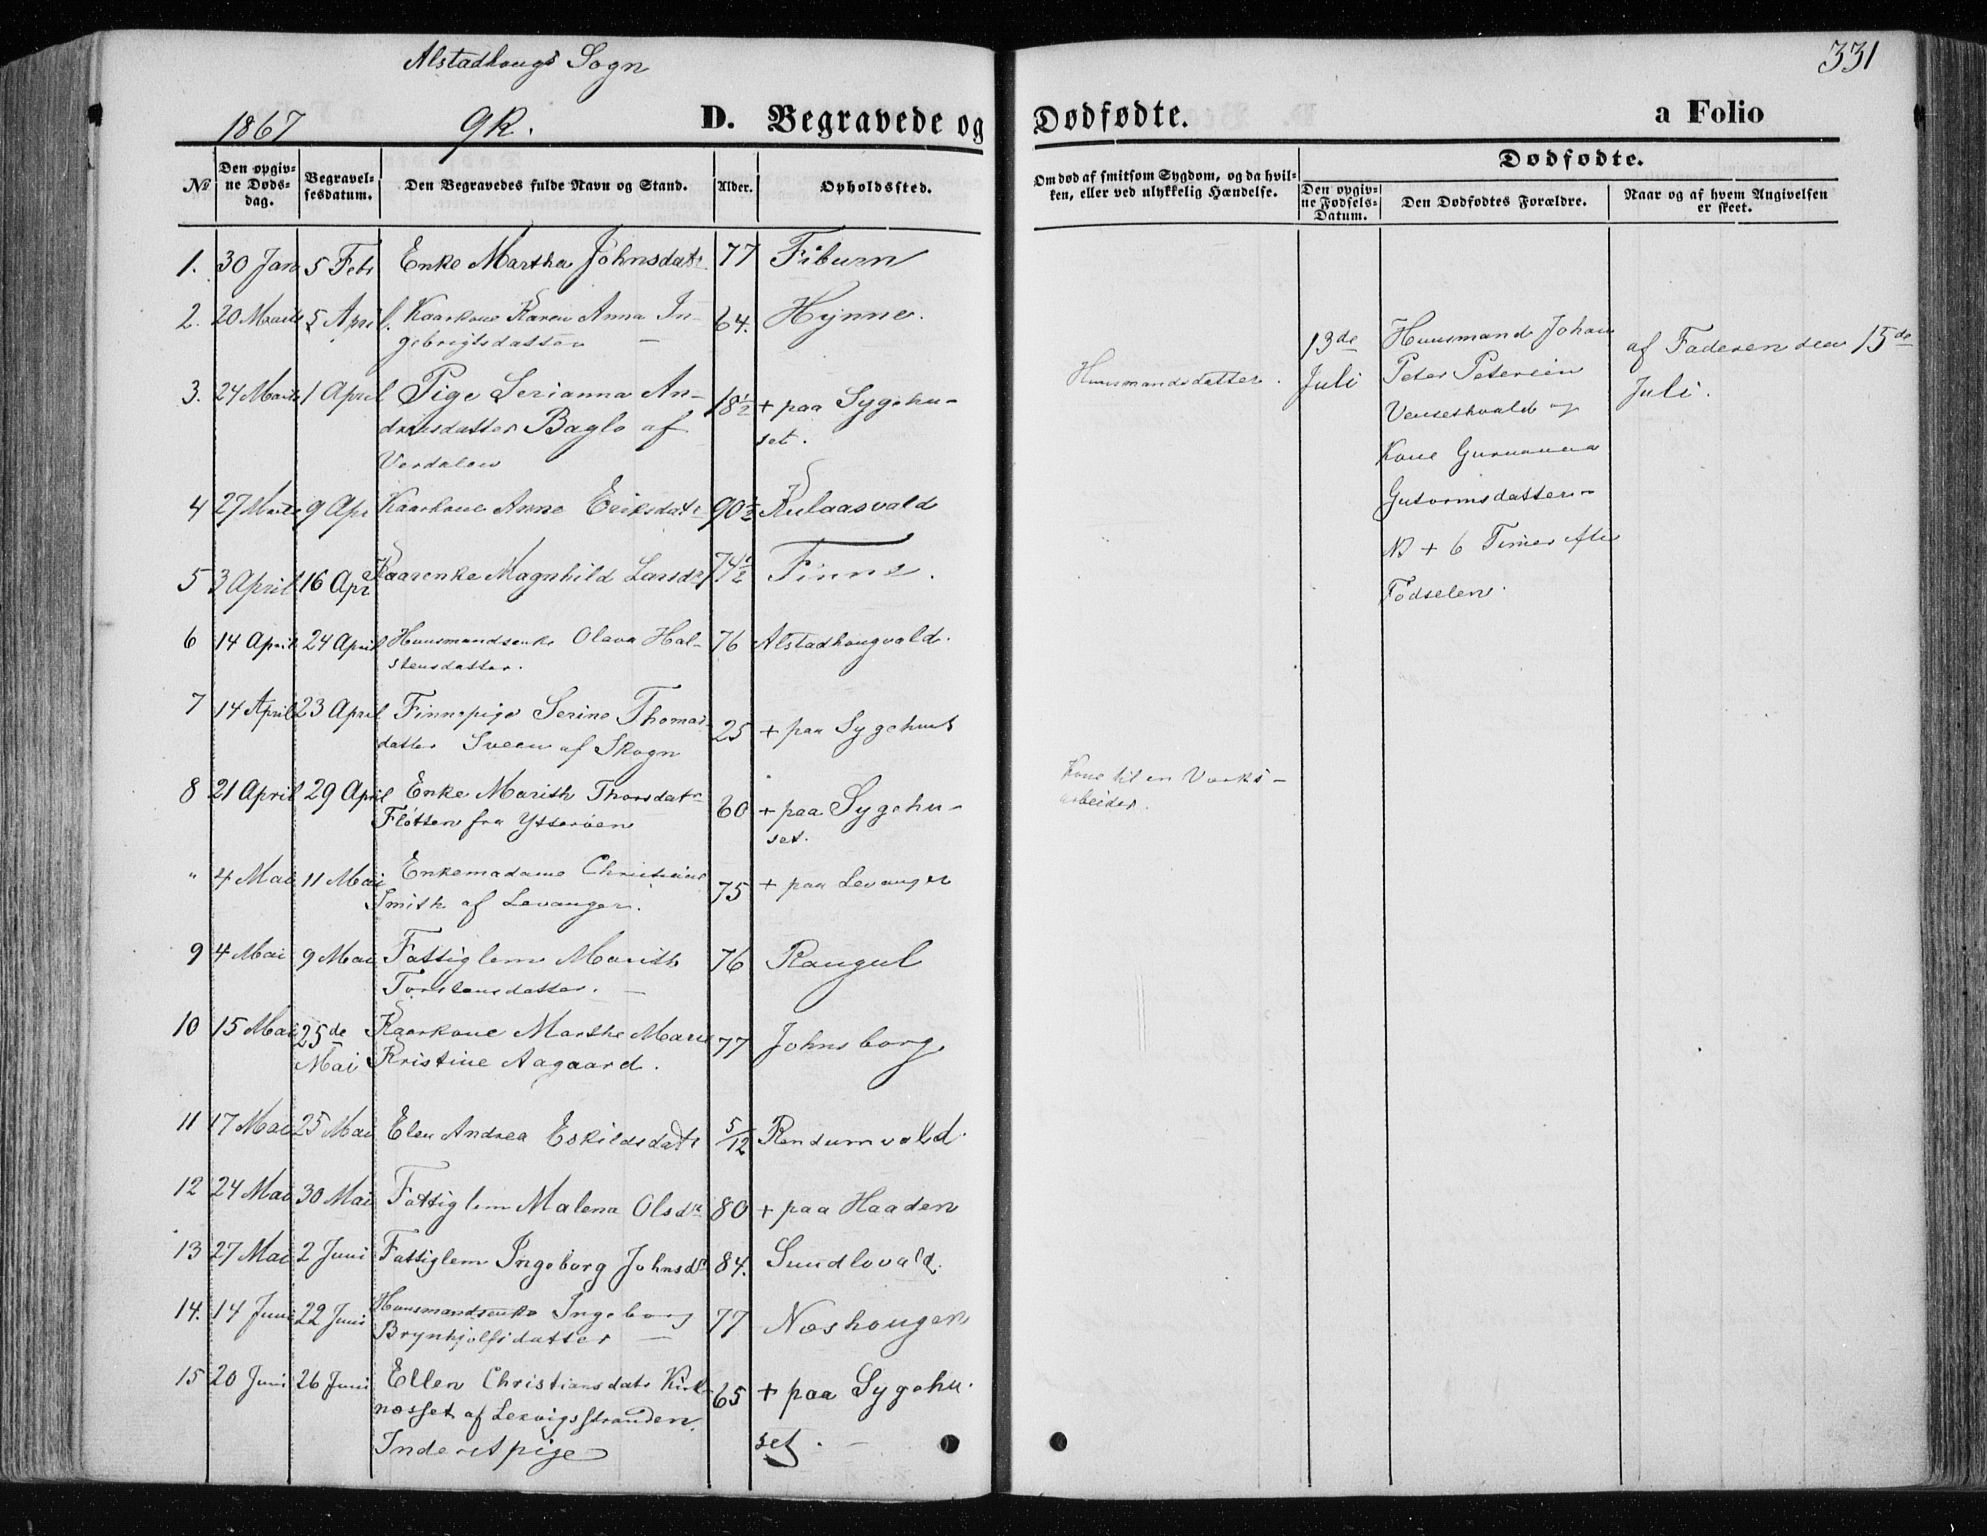 Alstadhougs Sogn
331
1867 QK. D. Begravede og Dødfødte. a Folio
№
Den opgivne Dødsdag.
Begravelsesdatum.
Den Begravedes fulde Navn og Stand.
Alder.
Opholdssted.
Om død af smitsom Sygdom, og da hvilken, eller ved ulykkelig Hændelse.
Dødfødte.
Den opgivne Fødsels-Datum.
Den Dødfødtes Forældre.
Naar og af hvem Angivelsen er skeet.
1. 30 Jan 5 Feb Enke Martha Johnsdatr 77 Fiburn
2. 20 Marts 5 April Kaarkone Karen Anna In-
gebrigtsdatter 64. Hynne.
3. 24 Marts 1 April Pige Serianna An-
dreasdatter Baglo af
Verdalen 18½ + paa Sygehu-
set.
Huusmandsdatter.
4 27 Marts 9 Apr Kaarkone Anne Eriksdatr 90½ Rulaasvald
5 3 April 16 Apr Kaarenke Magnhild Larsdr 74½ Finne.
6 14 April 24 April Huusmandsenke Olava Hal-
stensdatter. 76 Alstadhougvald.
7 14 April 23 April Finnepige Serine Thomas-
datter Sveen af Skogn 25 + paa Sygehuset
8 21 April 29 April Enke Marith Thorsdatr
Fløtten fra Ytterøen 60 + paa Sygehu-
set.
Kone til en Værks-
arbeider.
" 4 Mai 11 Mai Enkemadame Christiane
Smith af Levanger. 75 + paa Levanger
9 4 Mai 9 Mai Fattiglem Marith
Torstensdatter. 76 Raugul
10 15 Mai 25de
Mai Kaarkone Marthe Marie
Kristine Aagaard. 77 Johnsborg
11 17 Mai 25 Mai Elen Andrea Eskildsdatr 5/12 Rendumvald.
12 24 Mai 30 Mai Fattiglem Malena Olsdr 80 + paa Haaden
13 27 Mai 2 Juni Fattiglem Ingeborg Johnsdr 84. Sundlovald.
14. 14 Juni 22 Juni Huusmandsenke Ingeborg
Brynhjolfsdatter 77 Noshougen
15 20 Juni 26 Juni Ellen Christiansdatr Kirk-
nesset af Lexvigsstranden
Inderst pige 65 + paa Sygehu-
set.
13de
Juli
Huusmand Johan
Peter Petersen
og
Kone
Gutormsdatter
NB + 6 Timer efter
Fødselen.
af Faderen den 15de
Juli.